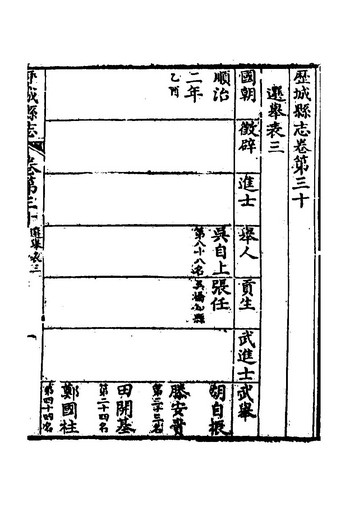 歷城縣志卷第三十
選舉表三
國朝 徵辟 進士 舉人 貢生 武進士 武舉
順治
二年
乙酉
吳自上
第八十八名
張任
胡自振
滕安貴
第二十三名
田開基
第二十四名
鄭國柱
第四十四名
歷城縣志 卷第三十 選舉表三 一